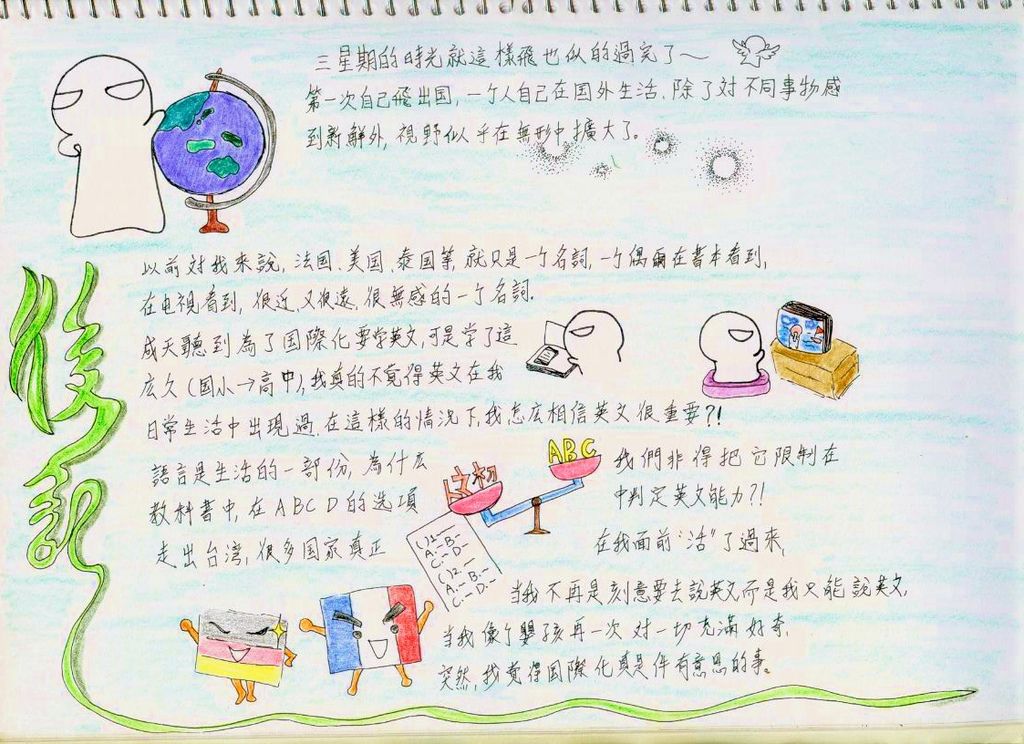 三星期的時光就這樣飛也似的過完了～
第一次自己飛出国,一个人自己在国外生活,除了对不同事物感
到新鮮外,視野似乎在無形中擴大了。
以前对我來說,法国、美国、泰国等,就只是一个名詞,一个偶爾在書本看到,
在电視看到,很近,又很遠,很無感的一个名詞.
成天聽到為了国際化要学英文,可是学了這
広久(国小→高中),我真的不覚得英文在我
日常生活中出現過.在這樣的情況下,我怎広相信英文很重要?!
語言是生活的一部份,為什広
教科書中,在ABCD的选項
我們非得把它限制在
中判定英文能力?!
走出台湾,很多国家真正
在我面前“活”了過來,
當我不再是刻意要去說英文而是我只能說英文,
當我像个嬰孩再一次对一切充滿好奇,
突然,我覚得国際化真是件有意思的事。
後記
ABC
( )1.-
A.-B.-
C.-D.-
( )2.-
A.-B.-
C.-D.-